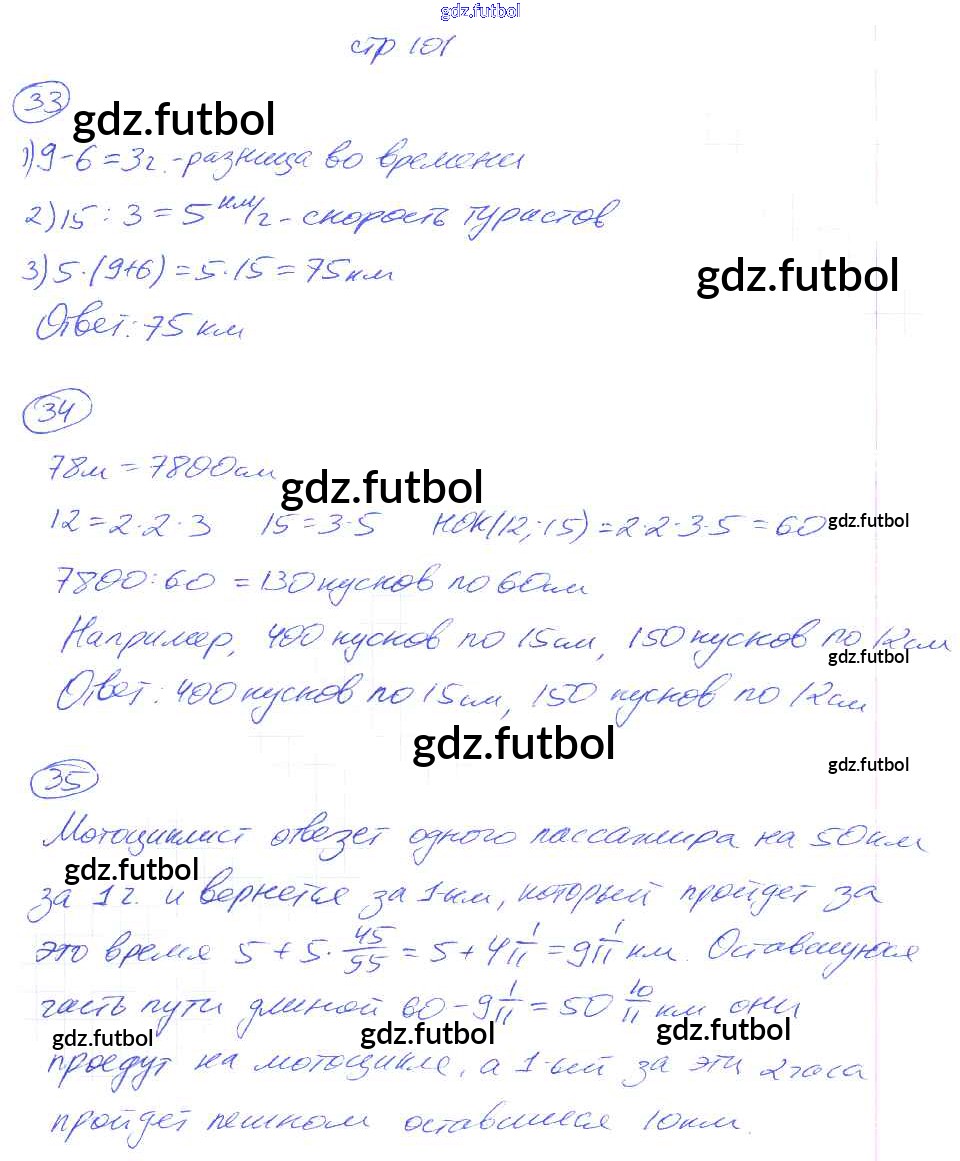 gdz.futbol
стр 101
33
gdz.futbol
1) 9-6=3г.-разница во времени
2) 15 : 3 = 5 км/г - скорость туристов
3) 5·(9+6) = 5·15 = 75 км
gdz.futbol
Ответ: 75 км
34
78м = 7800см
gdz.futbol
12 = 2·2·3 15 = 3·5 НОК(12;15) = 2·2·3·5 = 60
gdz.futbol
7800:60 = 130 кусков по 60см
Например, 400 кусков по 15см, 150 кусков по 12см
gdz.futbol
Ответ: 400 кусков по 15см, 150 кусков по 12см
gdz.futbol
gdz.futbol
35
Мотоциклист отвезет одного пассажира на 50км
gdz.futbol
за 1 г. и вернется за 1-ым, который пройдет за
это время 5 + 5·45/55 = 5 + 4 1/11 = 9 1/11 км. Оставшуюся
часть пути длиной 60 - 9 1/11 = 50 10/11 км они
gdz.futbol gdz.futbol gdz.futbol
проедут на мотоцикле, а 1-ый за эти 2 часа
пройдет пешком оставшиеся 10км.